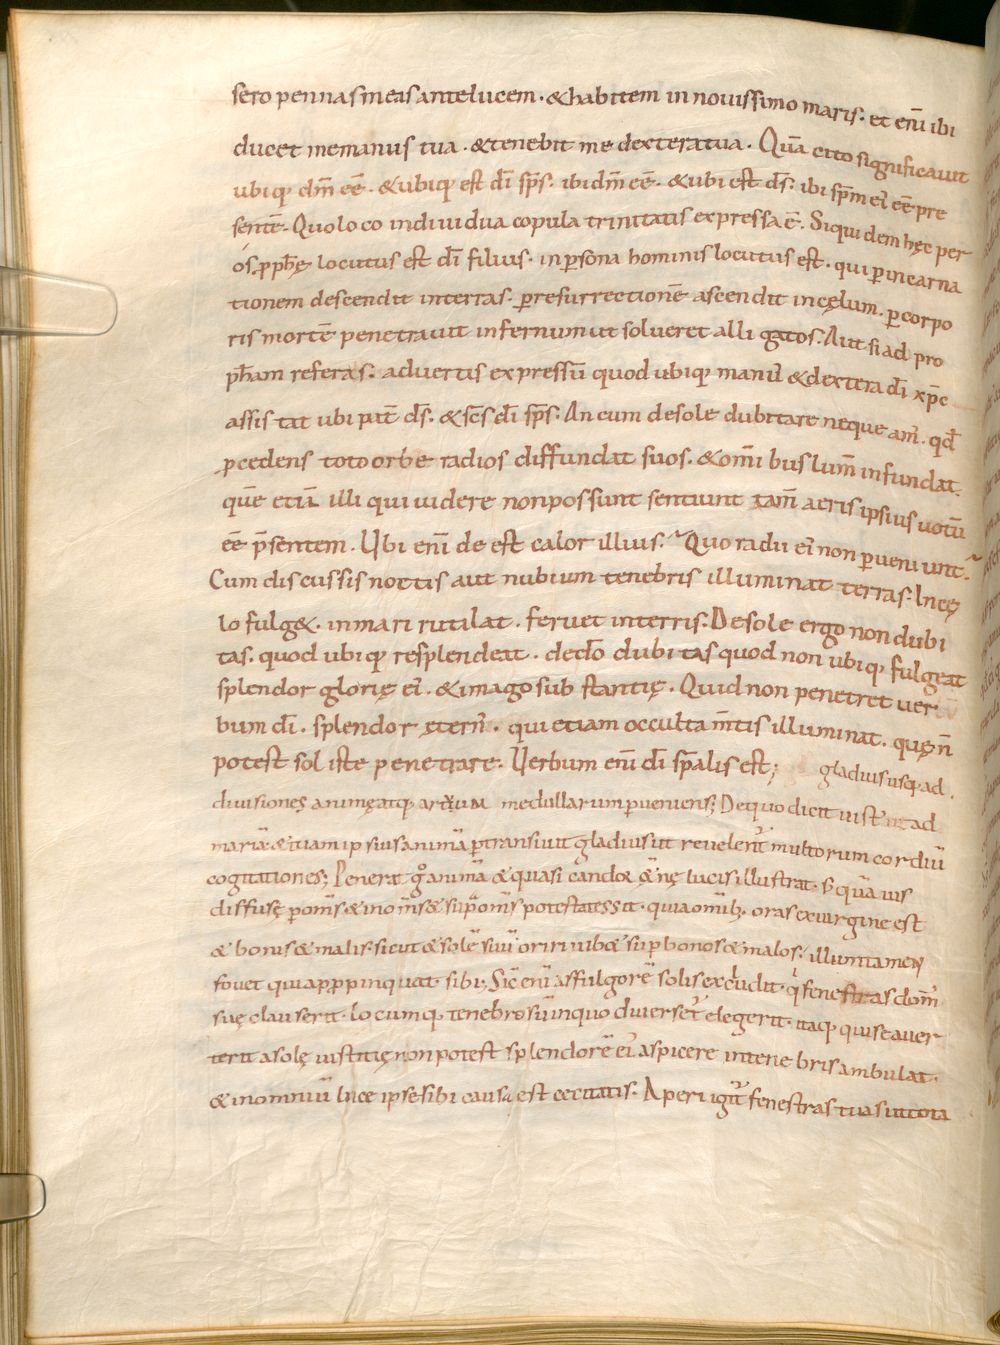 sero pennas meas ante lucem · & habitem in nouissimo maris · et enī ibi
ducet me manus tua · & tenebit me dextera tua · Quā cito significauit
ubiq; dm̄ eē · & ubiq; est dī sps̄ · ibi dm̄ eē · & ubi est ds̄ · ibi spm̄ eī eē pre
sentē · Quo loco indiuidua copula trinitatis expressa ē · Siquidem hęc per
os, pph̄ę locutus est dī filius · in psona hominis locutus est · qui p incarna
tionem descendit in terras · p resurrectionē ascendit in cęlum · p corpo
ris mortē penetrauit infernum ut solueret alligatos · Aut si ad pro
ph̄am referas · aduertis expressū quod ubiq; manū & dextera dī xpē
assistat ubi pat̄ ds̄ · & scs̄ dī sps̄ · An cum de sole dubitare nequeam̄ · qđ
pcedens toto orbe radios diffundat suos · & om̄ibus lum̄ infundat
quē etiā illi qui uidere non possunt sentiunt tam̄ aeris ipsius uotū
eē p̄sentem · Ubi enī deest calor illius · Quo radii eī non pueniunt ·
Cum discussis noctis aut nubium tenebris illuminat terras · In cę
lo fulg& · in mari rutilat · feruet in terris · De sole ergo non dubi
tas · quod ubiq; resplendeat · de do dubitas quod non ubiq; fulgeat
splendor glorię eī · & imago substantię · Quid non penetret uer
bum dī · splendor ętern̄ · qui etiam occulta m̄tis illuminat · quę n̄
potest sol iste penetrare · Uerbum enī dī sp̄alis est; gladius usq; ad
diuisiones animęatq; artuum medullarum pueniens; De quo dicit iust ad
mariā & tuam ipsius animā ptransiuit gladius ut reuelent̄ multorum cordiū
cogitationes; Penetrat g° animā & quasi candor ęt̄nę lucis illustrat · s; quā uis
diffusę p om̄s & in om̄s & sup om̄s potestatē sit · quia om̄ib; oras ex uirgine est
& bonis & malis · sicut & solē suū oriri iub& sup bonos & malos · illum tamen
fouet qui appropinquat sibi · Sic enī a se fulgorē solis excludit · qi fenestras dom̄
suę clauserit · locumq; tenebrosū in quo diuerset̄ elegerit · itaq; qui se auer
terit a solę iustitię non potest splendorē eī aspicere in tenebris ambulat ·
& in omniū luce ipse sibi causa est cecitatis · Aperi igit̄ fenestras tuas ut tota